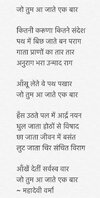 जो तुम आ जाते एक बार
कितनी करूणा कितने संदेश
पथ में बिछ जाते बन पराग
गाता प्राणों का तार तार
अनुराग भरा उन्माद राग
आँसू लेते वे पथ पखार
जो तुम आ जाते एक बार
हँस उठते पल में आर्द्र नयन
धुल जाता होठों से विषाद
छा जाता जीवन में बसंत
लुट जाता चिर संचित विराग
आँखें देतीं सर्वस्व वार
जो तुम आ जाते एक बार
~ महादेवी वर्मा